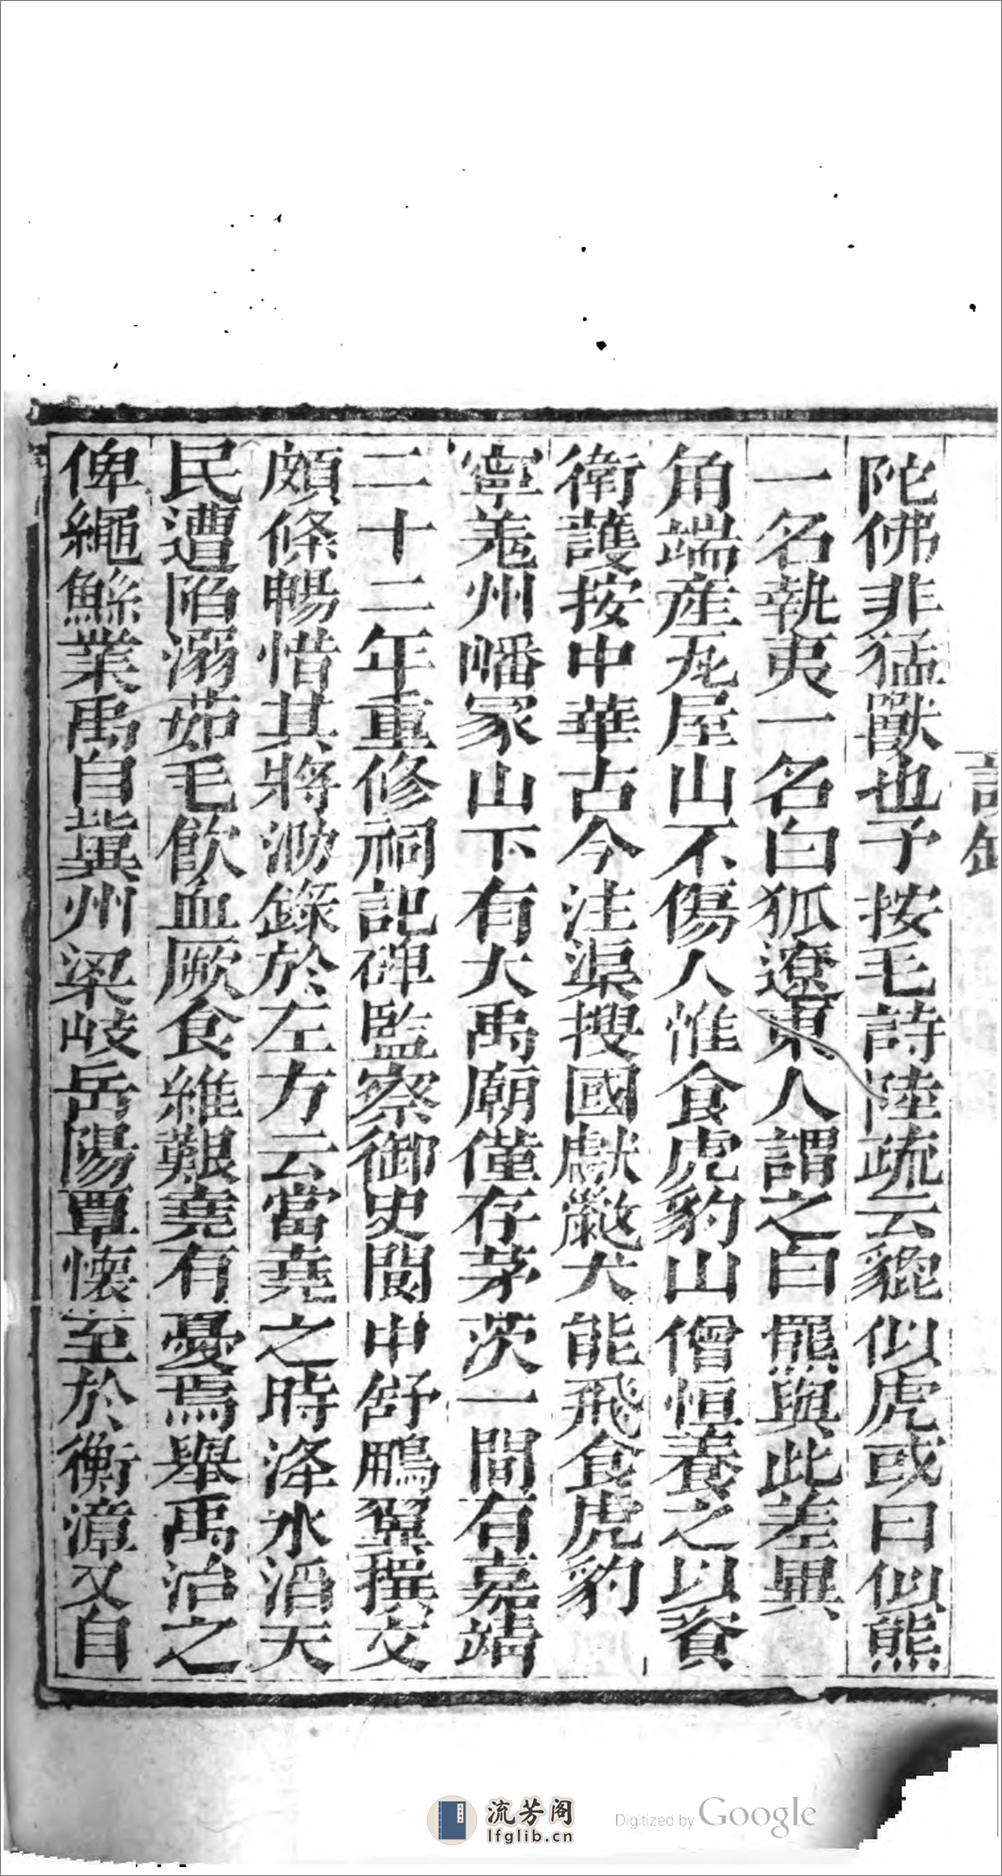 陀佛非猛獸也予按毛詩陸疏云貔似虎或曰似熊
一名執夷一名白狐遼東人謂之白羆與此差異
角端產瓦屋山不傷人惟食虎豹山僧恒養之以資
衛護按中華古今注渠搜國獻䶂犬能飛食虎豹
寧羌州嶓冢山下有大禹廟僅存茅茨一間有嘉靖
二十二年重修祠記碑監察御史閬中舒鵬翼撰文
頗條暢惜其將泐錄於左方云當堯之時洚水滔天
民遭陷溺茹毛飲血厥食維艱堯有憂焉舉禹治之
俾繩鯀業禹自冀州梁岐岳陽覃懷至於衡漳又自
流芳阁
lfglib.cn
Digitized by Google